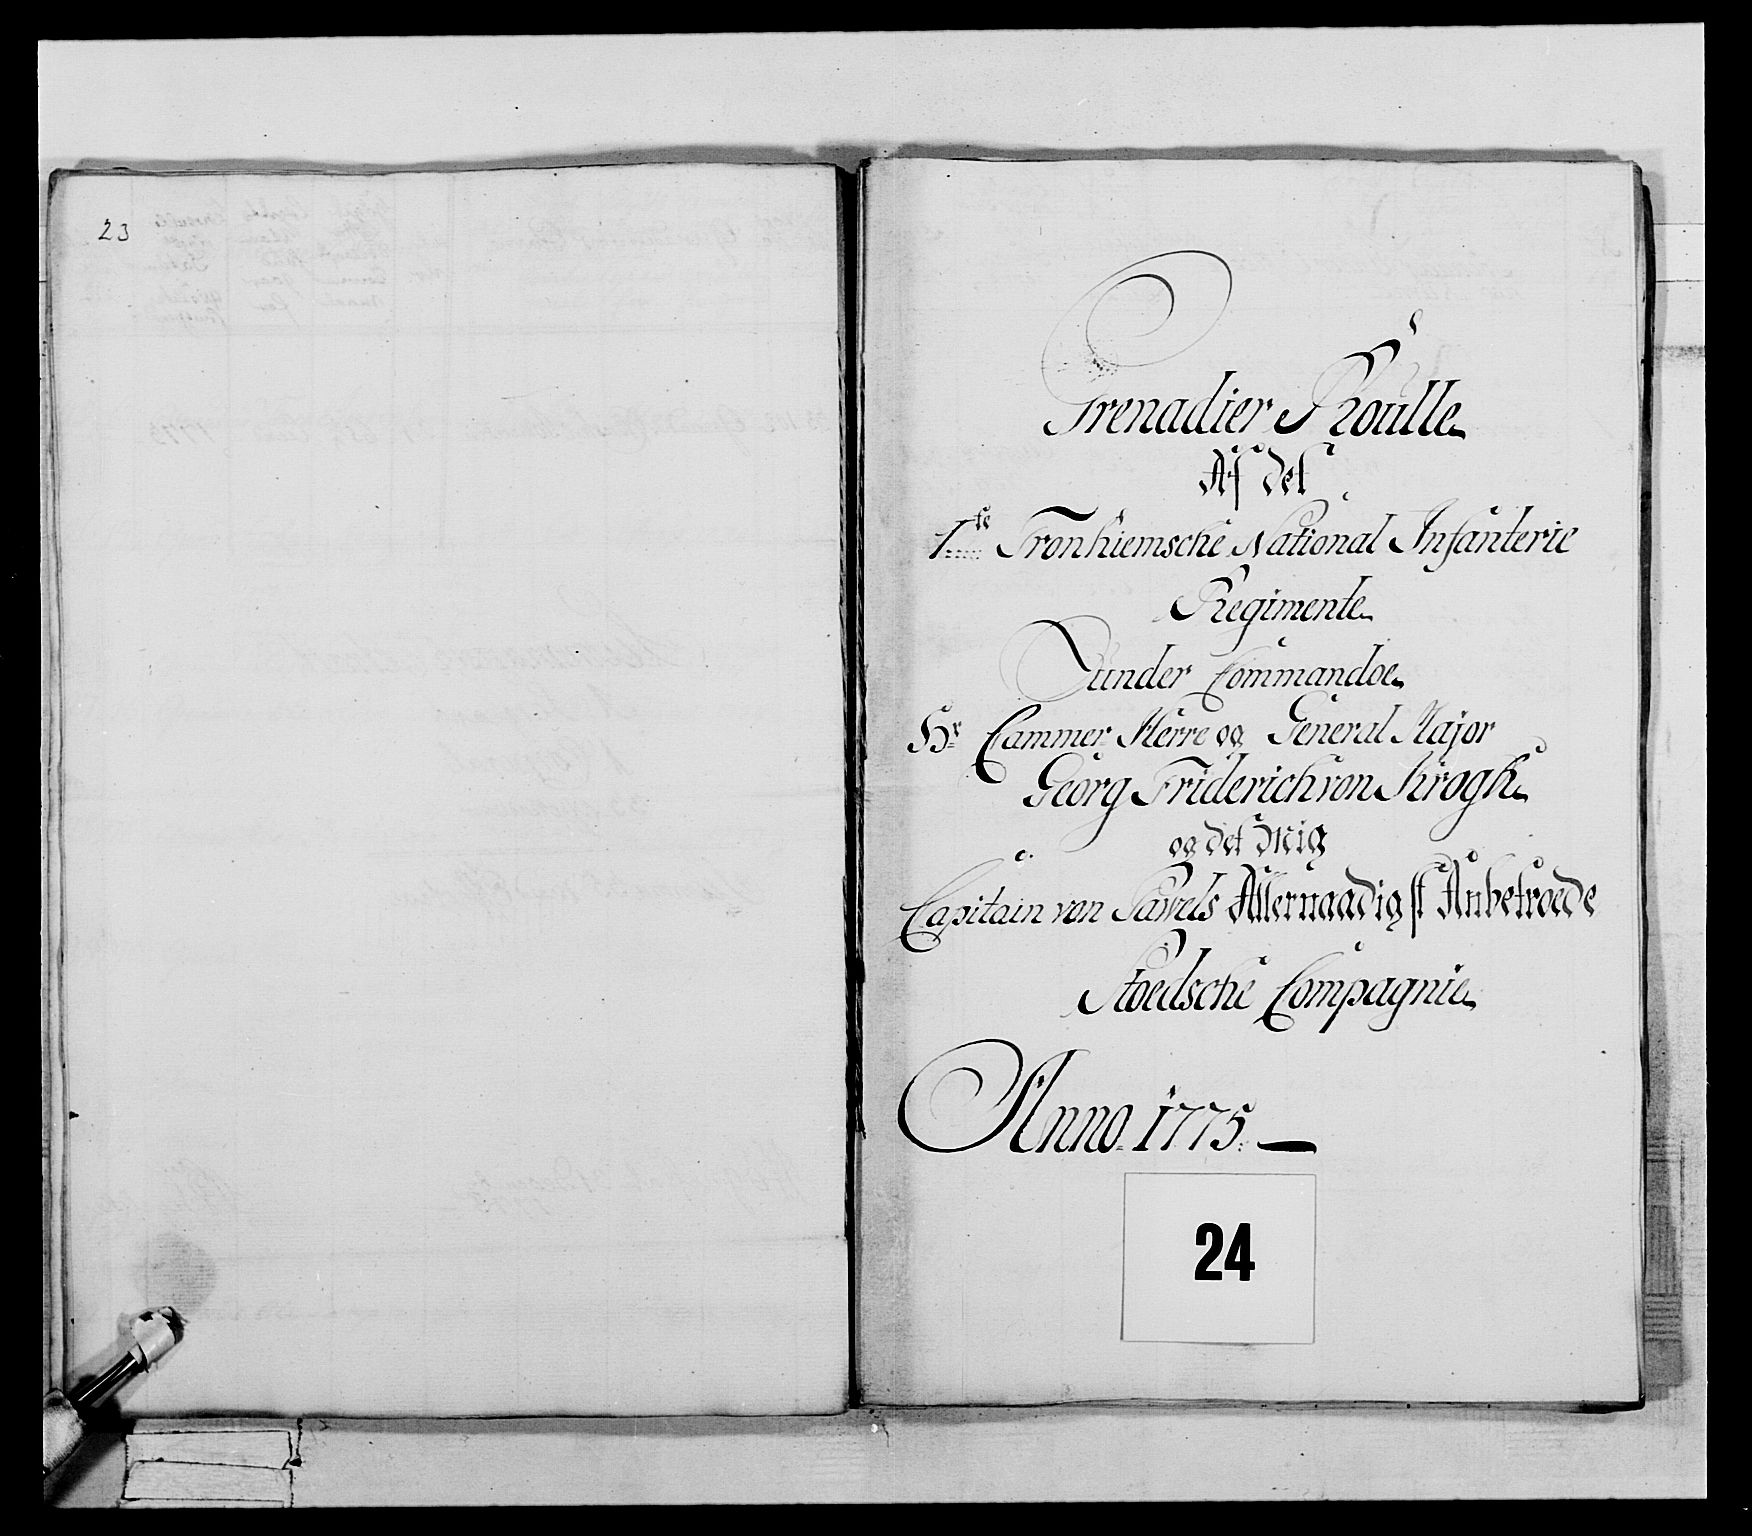 23
Grenadier Roulle
Af det
1ste Tronhiemsche National Infanterie
Regimente
under Commandoe
Hr Cammer Herre og General Major
Georg Friderich von Krogh
og det Mig
Capitain von Pawels Allernaadigst Anbetroede
Stoedsche Compagnie
Anno. 1775.
24